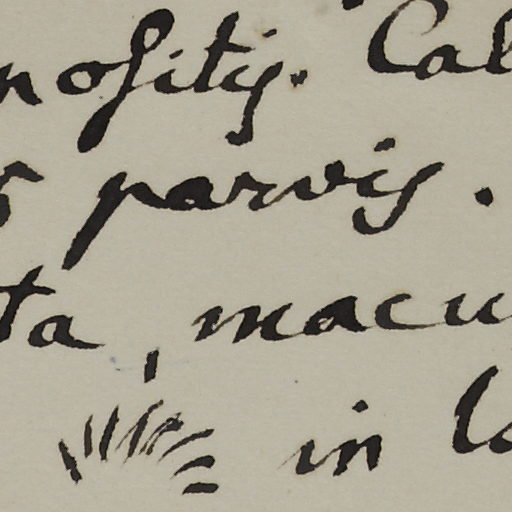 nosity. Cal
parvis.
ta, macu
in la